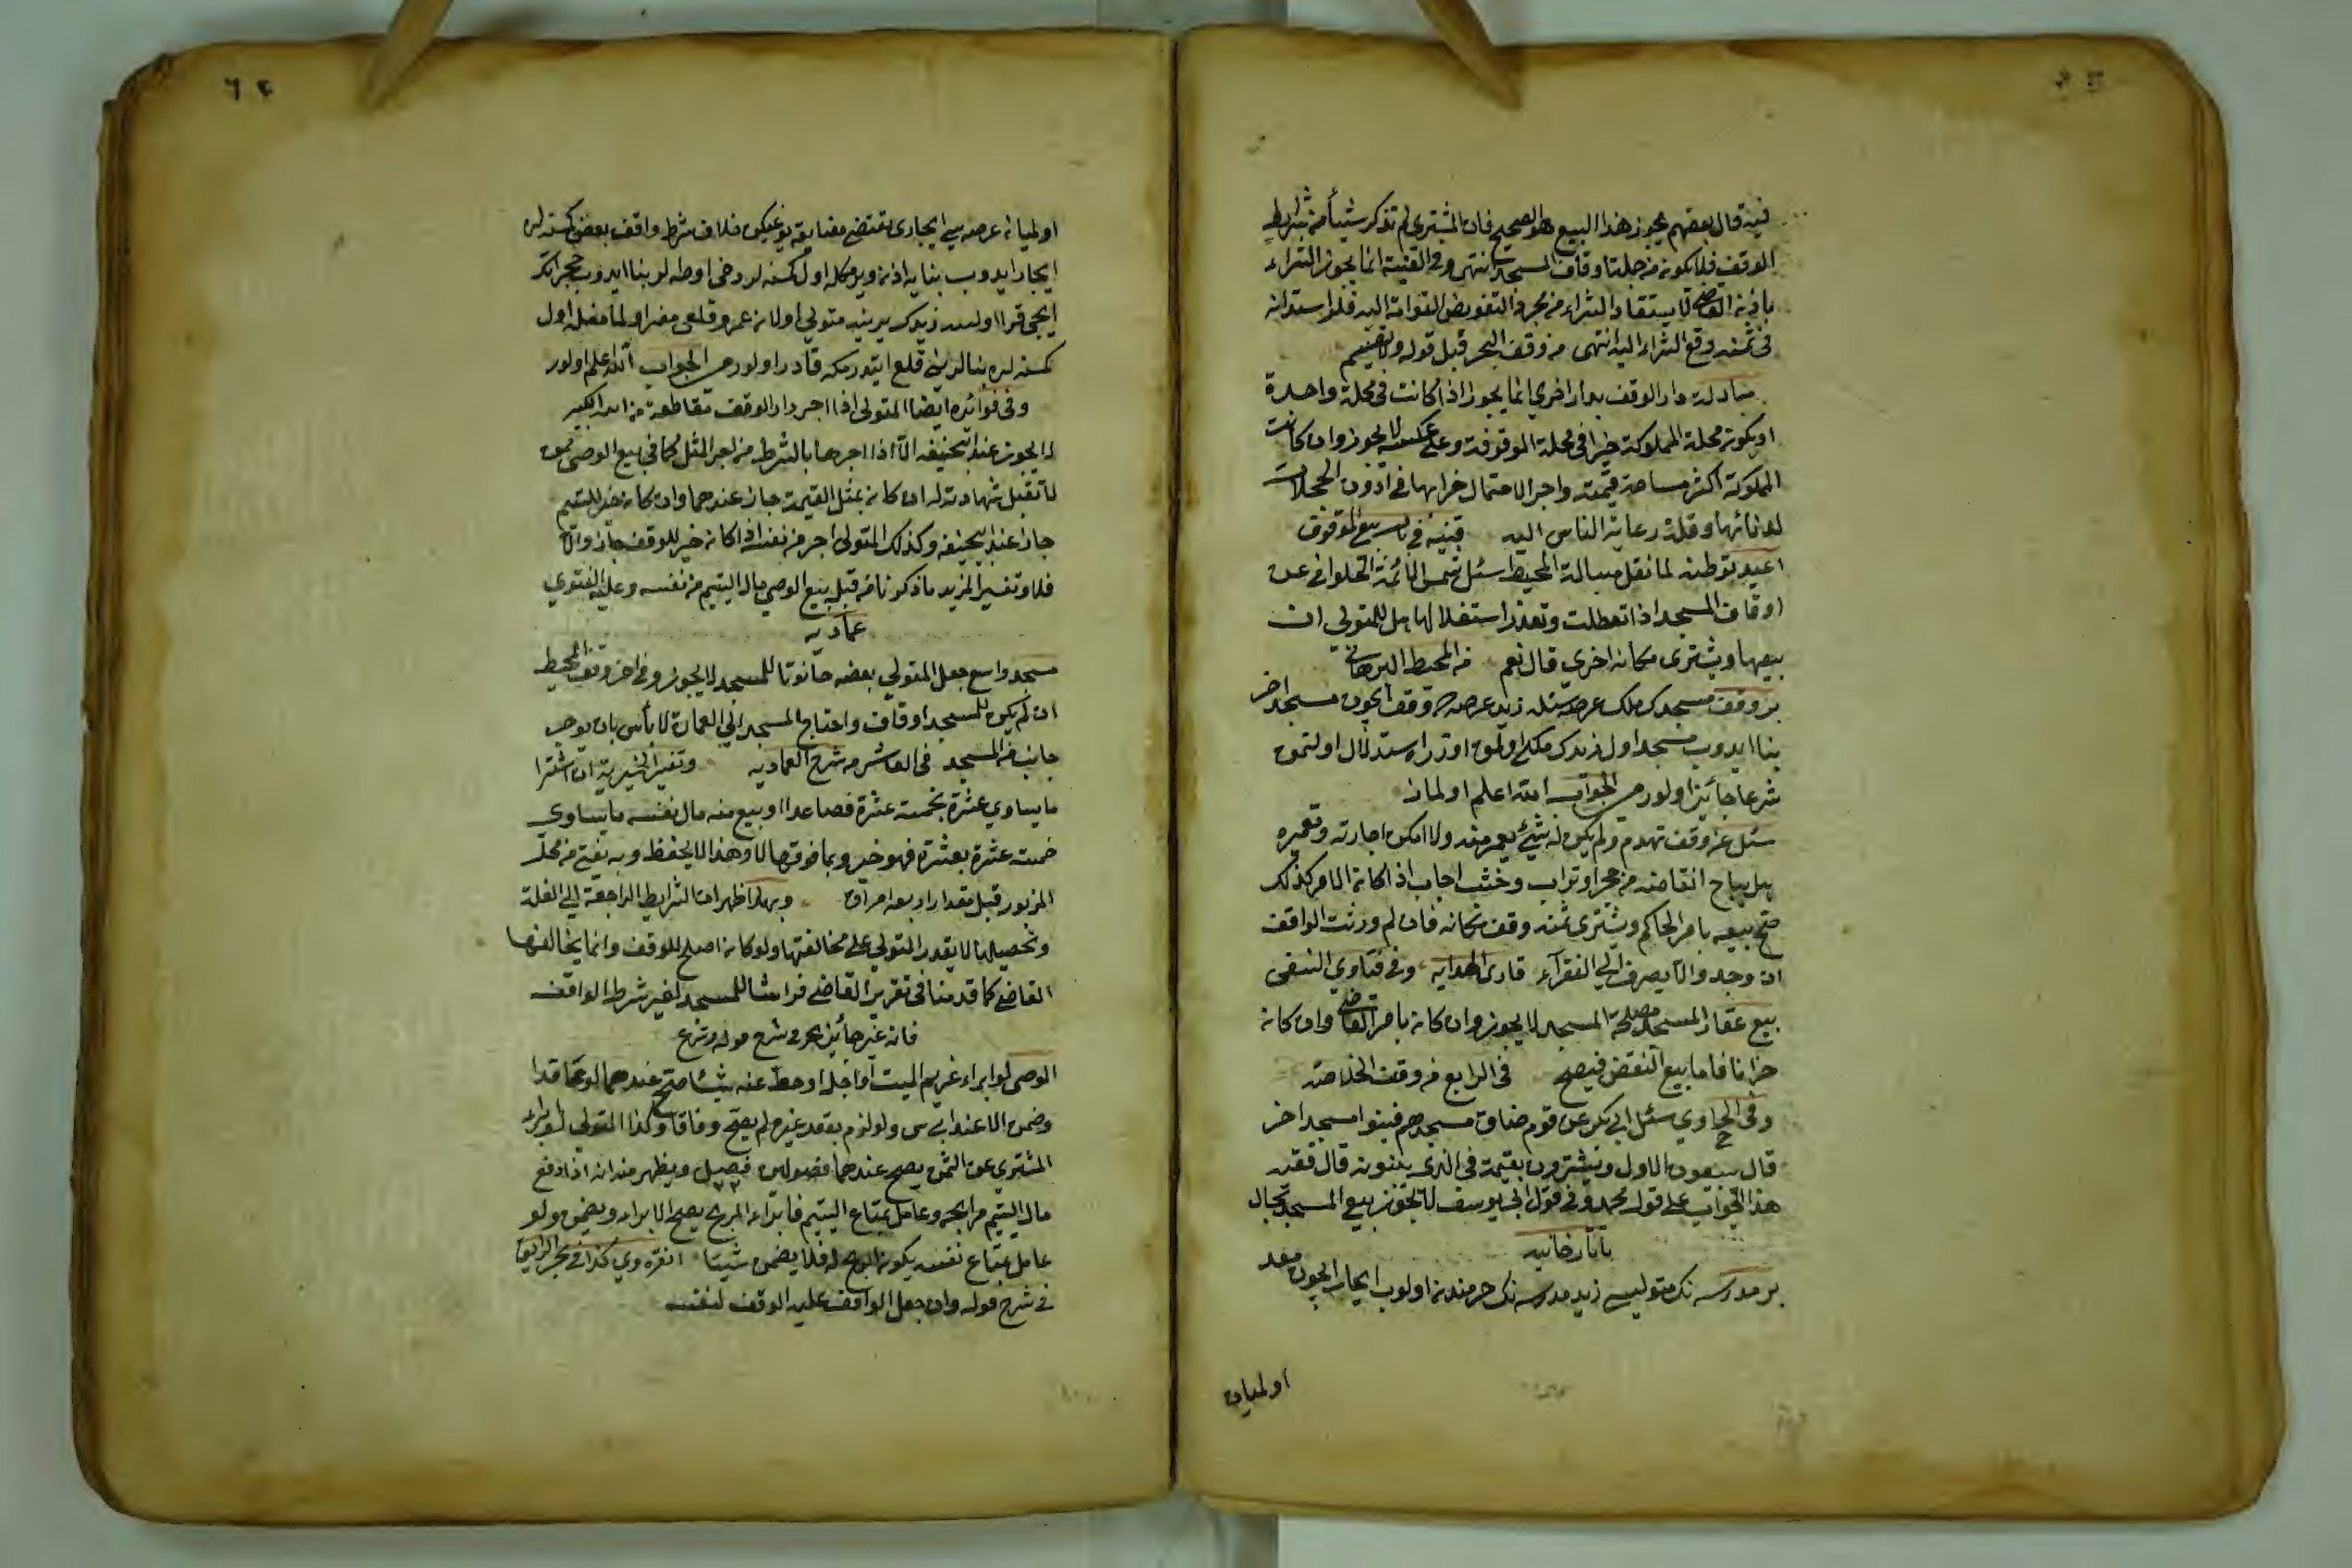 فيه قال بعضهم يجوز هذا البيع هو الصحيح فان المشتري لم تذكر شيئاً من شرائط
الوقف فلا يكون من جملة اوقاف المسجد انتهى وفي القنية انما يجوز الشراء
باذن القاضي لا يستفاد الشراء من مجرد التفويض القوامة اليه فلو استدان
في ثمنه وقع الشراء اليه انتهى من وقف البحر قبل قوله ولا يقسم
مبادلة دار الوقف بدار اخري انما يجوز اذا كانت في محلة واحدة
او يكون محلة المملوكة خيرا في محلة الموقوفة وعلى عكسه لا يجوز وان كانت
المملوكة اكثر مساحة وقيمة واجرا لاحتمال خرابها في ادون المحلات
لدنائتها وقلة رعاية الناس اليه قنيه في بيع الموقوف
اعيد توطئة لما نقل مسالة المحيط سئل شمس الائمة الحلواني عن
اوقاف المسجد اذا تعطلت وتعذر استغلالها هل للمتولى ان
يبيعها ويشترى مكانه اخرى قال نعم من المحيط البرهاني
بر وقف مسجدك ملك عرصه سنه زيد عرصه وقف ايچون مسجد اخر
بنا ايدوب مسجد اول زيدك ملكى اولمق اوزره استبدال اولنمق
شرعا جائز اولورمى الجواب الله اعلم اولماز
سئل عن وقف تهدم ولم يكن له شيئ يعمر منه ولا امكن اجارته وتعميره
هل يباح انقاضه من حجر وتراب وخشب اجاب اذا كانة الامر كذلك
صح بيعه بامر الحاكم ويشترى بثمنه وقف مكانه فان لم ورثت الواقف
ان وجد والا يصرف الي الفقرآء قارى الهدايه وفي فتاوي النسفى
بيع عقار المسجد لمصلحة المسجد لا يجوز وان كانة بامر القاضي وان كانة
خرابا فاما بيع النقض فيصح في الرابع من وقف الخلاصة
وفي الحاوي سئل ابي بكر عن قوم ضاق مسجدهم فبنوا مسجد اخر
قال يبيعون الاول ويشترون بقيمة في الذى يبنونه قال فقيه
هذا الجواب على قول محمد وفي قول ابي يوسف لا يجوز بيع المسجد بحال
تاتارخانيه
بر مدرسه نك متوليسى زيد مدرسه نك خرمندنه اولوب ايجار ايچون معد
اولميان
اولميان عرصه سي ايجارى مقتضى مضايقه يوغيكن خلاف شرط واقف بعض كسنه لره
ايجار ايدوب بنايه اذن ويرمكله اول كسنه لر دخى اوطه لر بنا ايدوب حجراتك
كسنه لره بنالرينى قلع ايتدرمكه قادر اولورمى الجواب الله اعلم اولور
وفي فوائده ايضا المتولى اذا اجر دار الوقف مقاطعة من ابنه الكبير
لا يجوز عند ابي حنيفه الا اذا اجرها بالشرط من اجر المثل كما في بيع الوصي ممن
لا تقبل شهادته له ان كانه بمثل القيمة جاز عندهما وان كانه خير لليتيم
جاز عند ابي حنيفه وكذلك المتولى اجر من نفسه اذا كانه خير للوقف جاز والا
فلا وتفسير المزيد ما ذكرناه من قبل بيع الوصي مال اليتيم من نفسه وعليه الفتوي
عماديه
مسجد واسع جعل المتولي بعضه حانوتا للمسجد لا يجوز وفي اخر وقف المحيط
ان لم يكن للمسجد اوقاف واحتاج المسجد الي العمارة لا بأس بان يوجر
جانب من المسجد في العاشر من شرح العماديه وتفسير الخيرية ان اشترا
ما يساوي عشرة بخمسة عشرة فصاعدا او بيع منه مال نفسه ما يساوى
خمسة عشرة بعشرة فهو خير وبما فوقها لا وهذا لا يحفظ وبه يفتى من محل
المزبور قبل مقدار اربعه اوراق وبهذا ظهر ان الشرايط الراجعة الي الغلة
وتحصيلها لا يقدر المتولي على مخالفتها ولو كانه اصلح للوقف وانما يخالفها
القاضي كما قدمنا في تقرير القاضي فراشا للمسجد لغير شرط الواقف
فانه غير جائز بحر في شرح قوله وينزع
الوصى لو ابراء غريم الميت او اجل او حط عنه شيئا صح عندهما لو عاقدا
وضمن الا عند ابي س ولو لزم بعقد غيره لم يصح وفاقا وكذا المتولي لو ابراء
المشتري عن الثمن يصح عندهما فصولين فيصيل ويظهر منه انه اذا دفع
مال اليتيم مرابحه وعامل بمتاع اليتيم فابراء المربح يصح الابراء ويضمن ولو
عامل بمتاع نفسه يكون الربح له فلا يضمن شيئا انقره وي كذا في بحر الرايق
في شرح قوله وان جعل الواقف عليه الوقف لنفسه